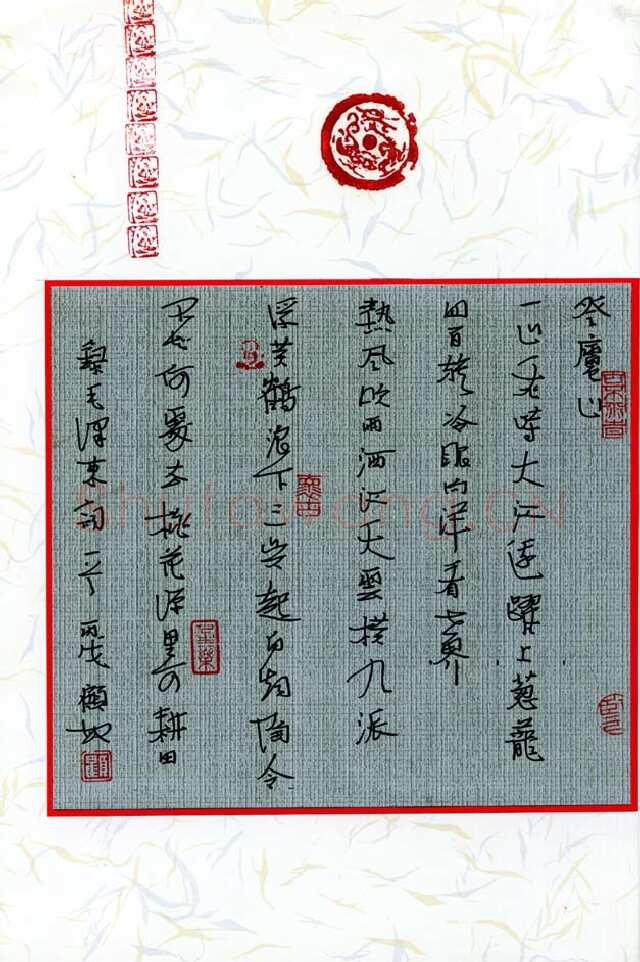 登廬山
一山飛峙大江邊躍上蔥蘢
四百旋冷眼向洋看世界
熱風吹雨洒江天雲橫九派
浮黃鶴浪下三吳起白煙陶令
不知何處去桃花源里可耕田
毛澤東詞一首丙戌顧